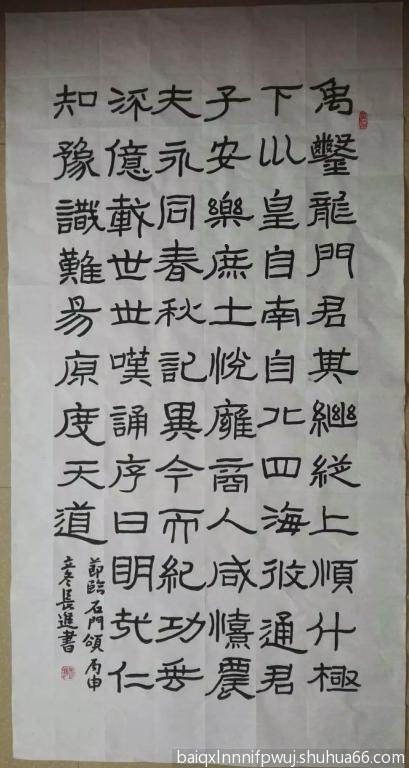 禹鑿龍門君其繼縱上順什極
下巛皇自南自北四海攸通君
子安樂庶土悅廱商人咸憘農
夫永同春秋記異今而紀功垂
流億載世世嘆誦序曰明哉仁
知豫識難易原度天道
節臨石門頌丙申
立冬長進書
baiqxlnnnifpwuj.shuhua66.com